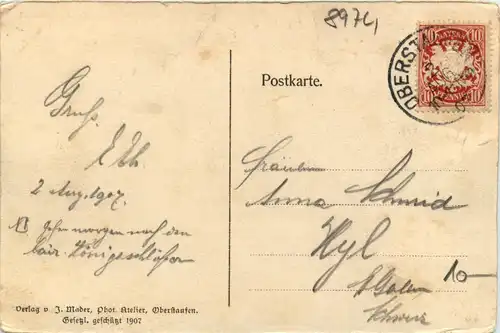 8974
Postkarte.
OBERSTA
BAYERN
10 10
10 10
Gruss.
2 Aug. 1907.
Gehn morgen nach den
bair. Königsschlösser
Fräulein
Anna Schmid
Wyl
St Gallen
Schweiz
10-
Verlag v. J. Mader, Phot. Atelier, Oberstaufen.
Gesetzl. geschützt 1907